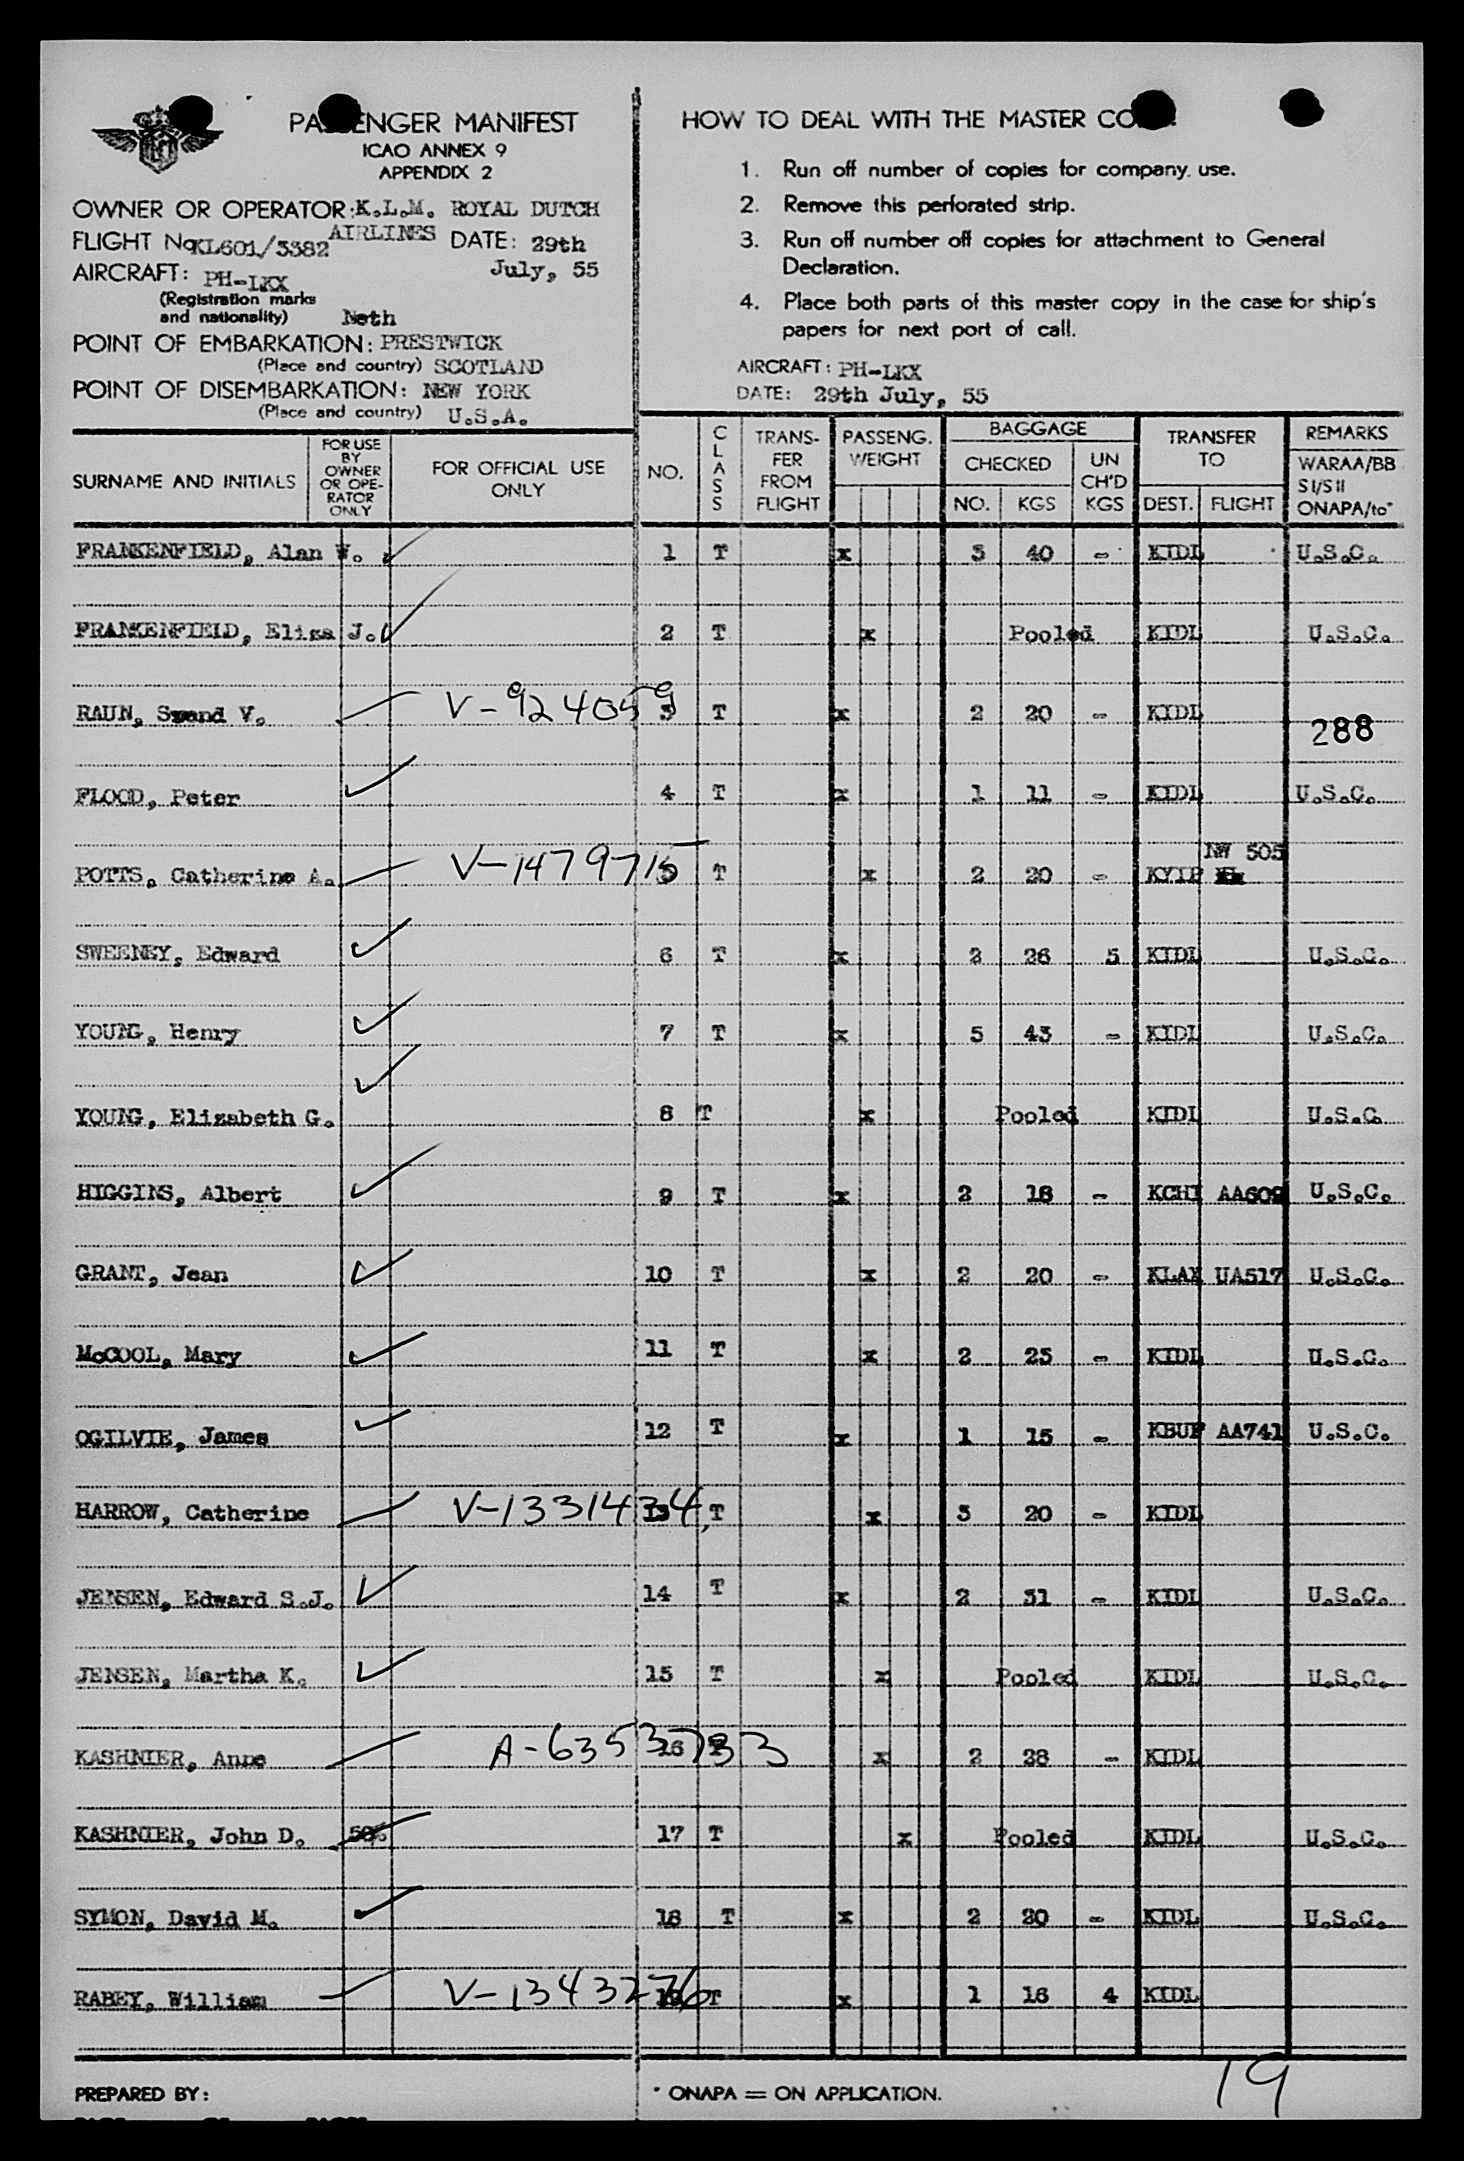 PASSENGER MANIFEST
ICAO ANNEX 9
APPENDIX 2
OWNER OR OPERATOR: K.L.M. ROYAL DUTCH
AIRLINES
FLIGHT No KL601/3382 DATE: 29th
July, 55
AIRCRAFT: PH-LKX
(Registration marks
and nationality) Neth
POINT OF EMBARKATION: PRESTWICK
(Place and country) SCOTLAND
POINT OF DISEMBARKATION: NEW YORK
(Place and country) U.S.A.
HOW TO DEAL WITH THE MASTER
1. Run off number of copies for company use.
2. Remove this perforated strip.
3. Run off number off copies for attachment to General
Declaration.
4. Place both parts of this master copy in the case for ship's
papers for next port of call.
AIRCRAFT: PH-LKX
DATE: 29th July, 55
SURNAME AND INITIALS
FOR USE BY OWNER OR OPE-RATOR ONLY
FOR OFFICIAL USE ONLY
NO. CLASS TRANS-FER FROM FLIGHT PASSENG. WEIGHT BAGGAGE CHECKED NO. KGS UN CH'D KGS TRANSFER TO DEST. FLIGHT REMARKS WARAA/BB SI/SII ONAPA/to*
FRANKENFIELD, Alan W. 1 T x 3 40 - KIDL U.S.C.
FRANKENFIELD, Eliza J. 2 T x Pooled KIDL U.S.C.
RAUN, Swend V. V-924059 3 T x 2 20 - KIDL 288
FLOOD, Peter 4 T x 1 11 - KIDL U.S.C.
NW 505
POTTS, Catherine A. V-1479715 5 T x 2 20 - KYIP
SWEENEY, Edward 6 T x 2 26 5 KIDL U.S.C.
YOUNG, Henry 7 T x 5 43 - KIDL U.S.C.
YOUNG, Elizabeth G. 8 T x Pooled KIDL U.S.C.
HIGGINS, Albert 9 T x 2 18 - KCHI AA609 U.S.C.
GRANT, Jean 10 T x 2 20 - KLAX UA517 U.S.C.
McCOOL, Mary 11 T x 2 25 - KIDL U.S.C.
OGILVIE, James 12 T x 1 15 - KBUF AA741 U.S.C.
HARROW, Catherine V-1331434 13 T x 3 20 - KIDL
JENSEN, Edward S.J. 14 T x 2 31 - KIDL U.S.C.
JENSEN, Martha K. 15 T x Pooled KIDL U.S.C.
KASHNIER, Anne A-6353733 16 T x 2 28 - KIDL
KASHNIER, John D. 50% 17 T x Pooled KIDL U.S.C.
SYMON, David M. 18 T x 2 20 - KIDL U.S.C.
RABEY, William V-1343276 19 T x 1 16 4 KIDL
PREPARED BY:
* ONAPA = ON APPLICATION.
19